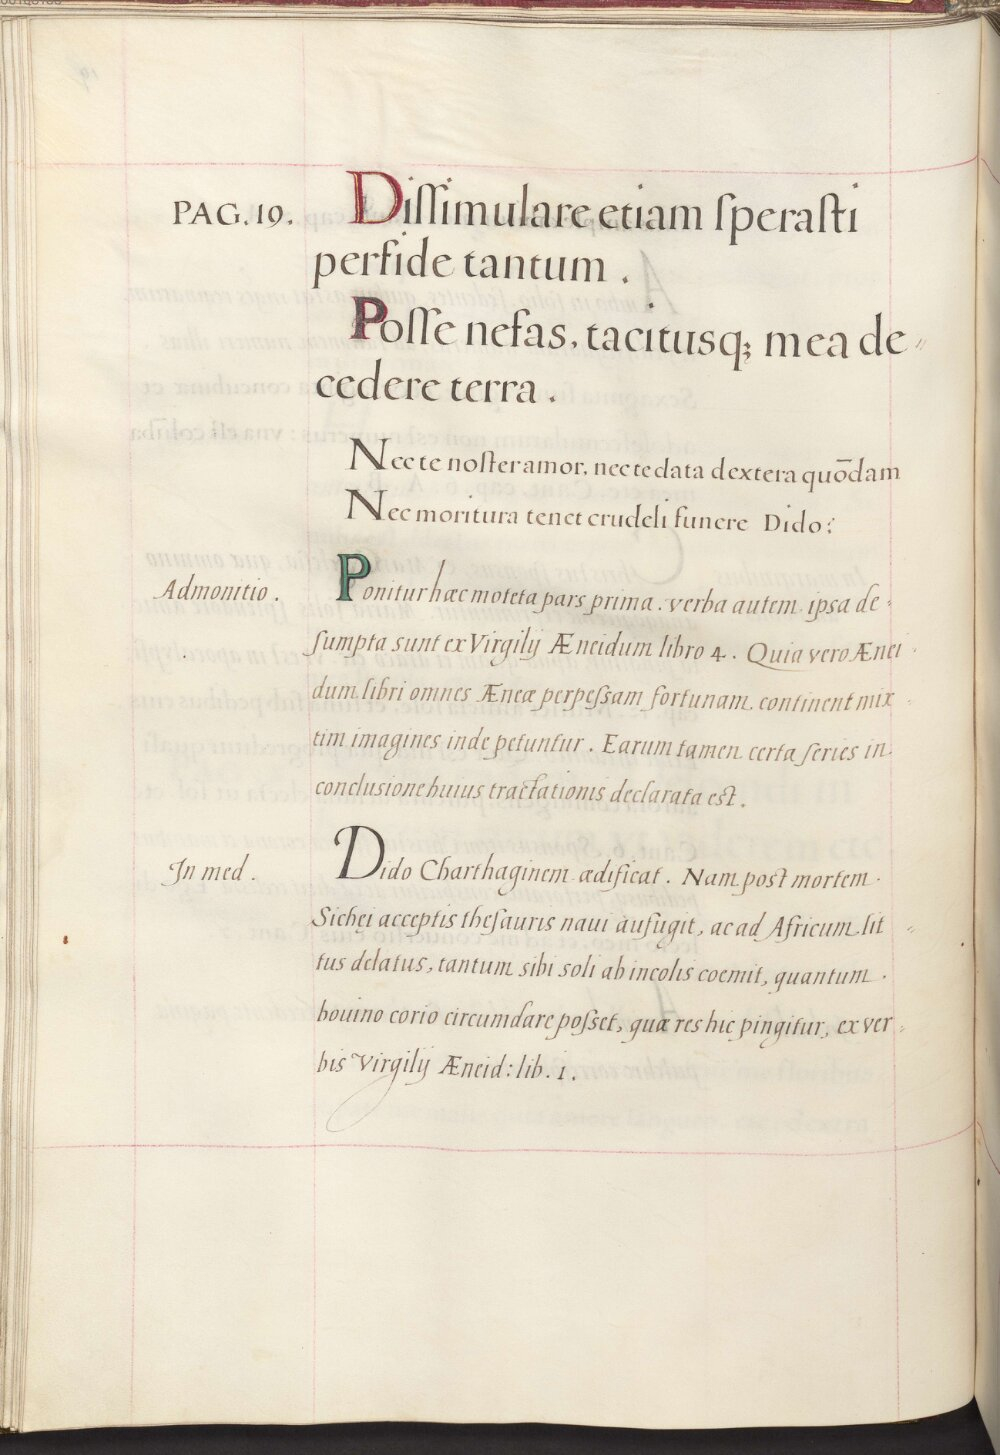 PAG. 19. Dissimulare etiam sperasti
perfide tantum .
Posse nefas, tacitusq; mea de„
cedere terra .
Nec te noster amor, nec te data dextera quōdam
Nec moritura tenet crudeli funere Dido;
Admonitio . Ponitur hæc moteta pars prima . verba autem ipsa de„
sumpta sunt ex Virgilij Æneidum libro 4 . Quia vero Ænei„
dum libri omnes Æneæ perpessam fortunam continent mix„
tim imagines inde petuntur . Earum tamen certa series in
conclusione huius tractationis declarata est .
In med . Dido Charthaginem ædificat . Nam post mortem
Sichei acceptis thesauris naui aufugit, ac ad Africum lit„
tus delatus, tantum sibi soli ab incolis coemit, quantum
bouino corio circumdare posset, quæ res hic pingitur, ex ver„
bis Virgilij Æneid: lib. 1 .